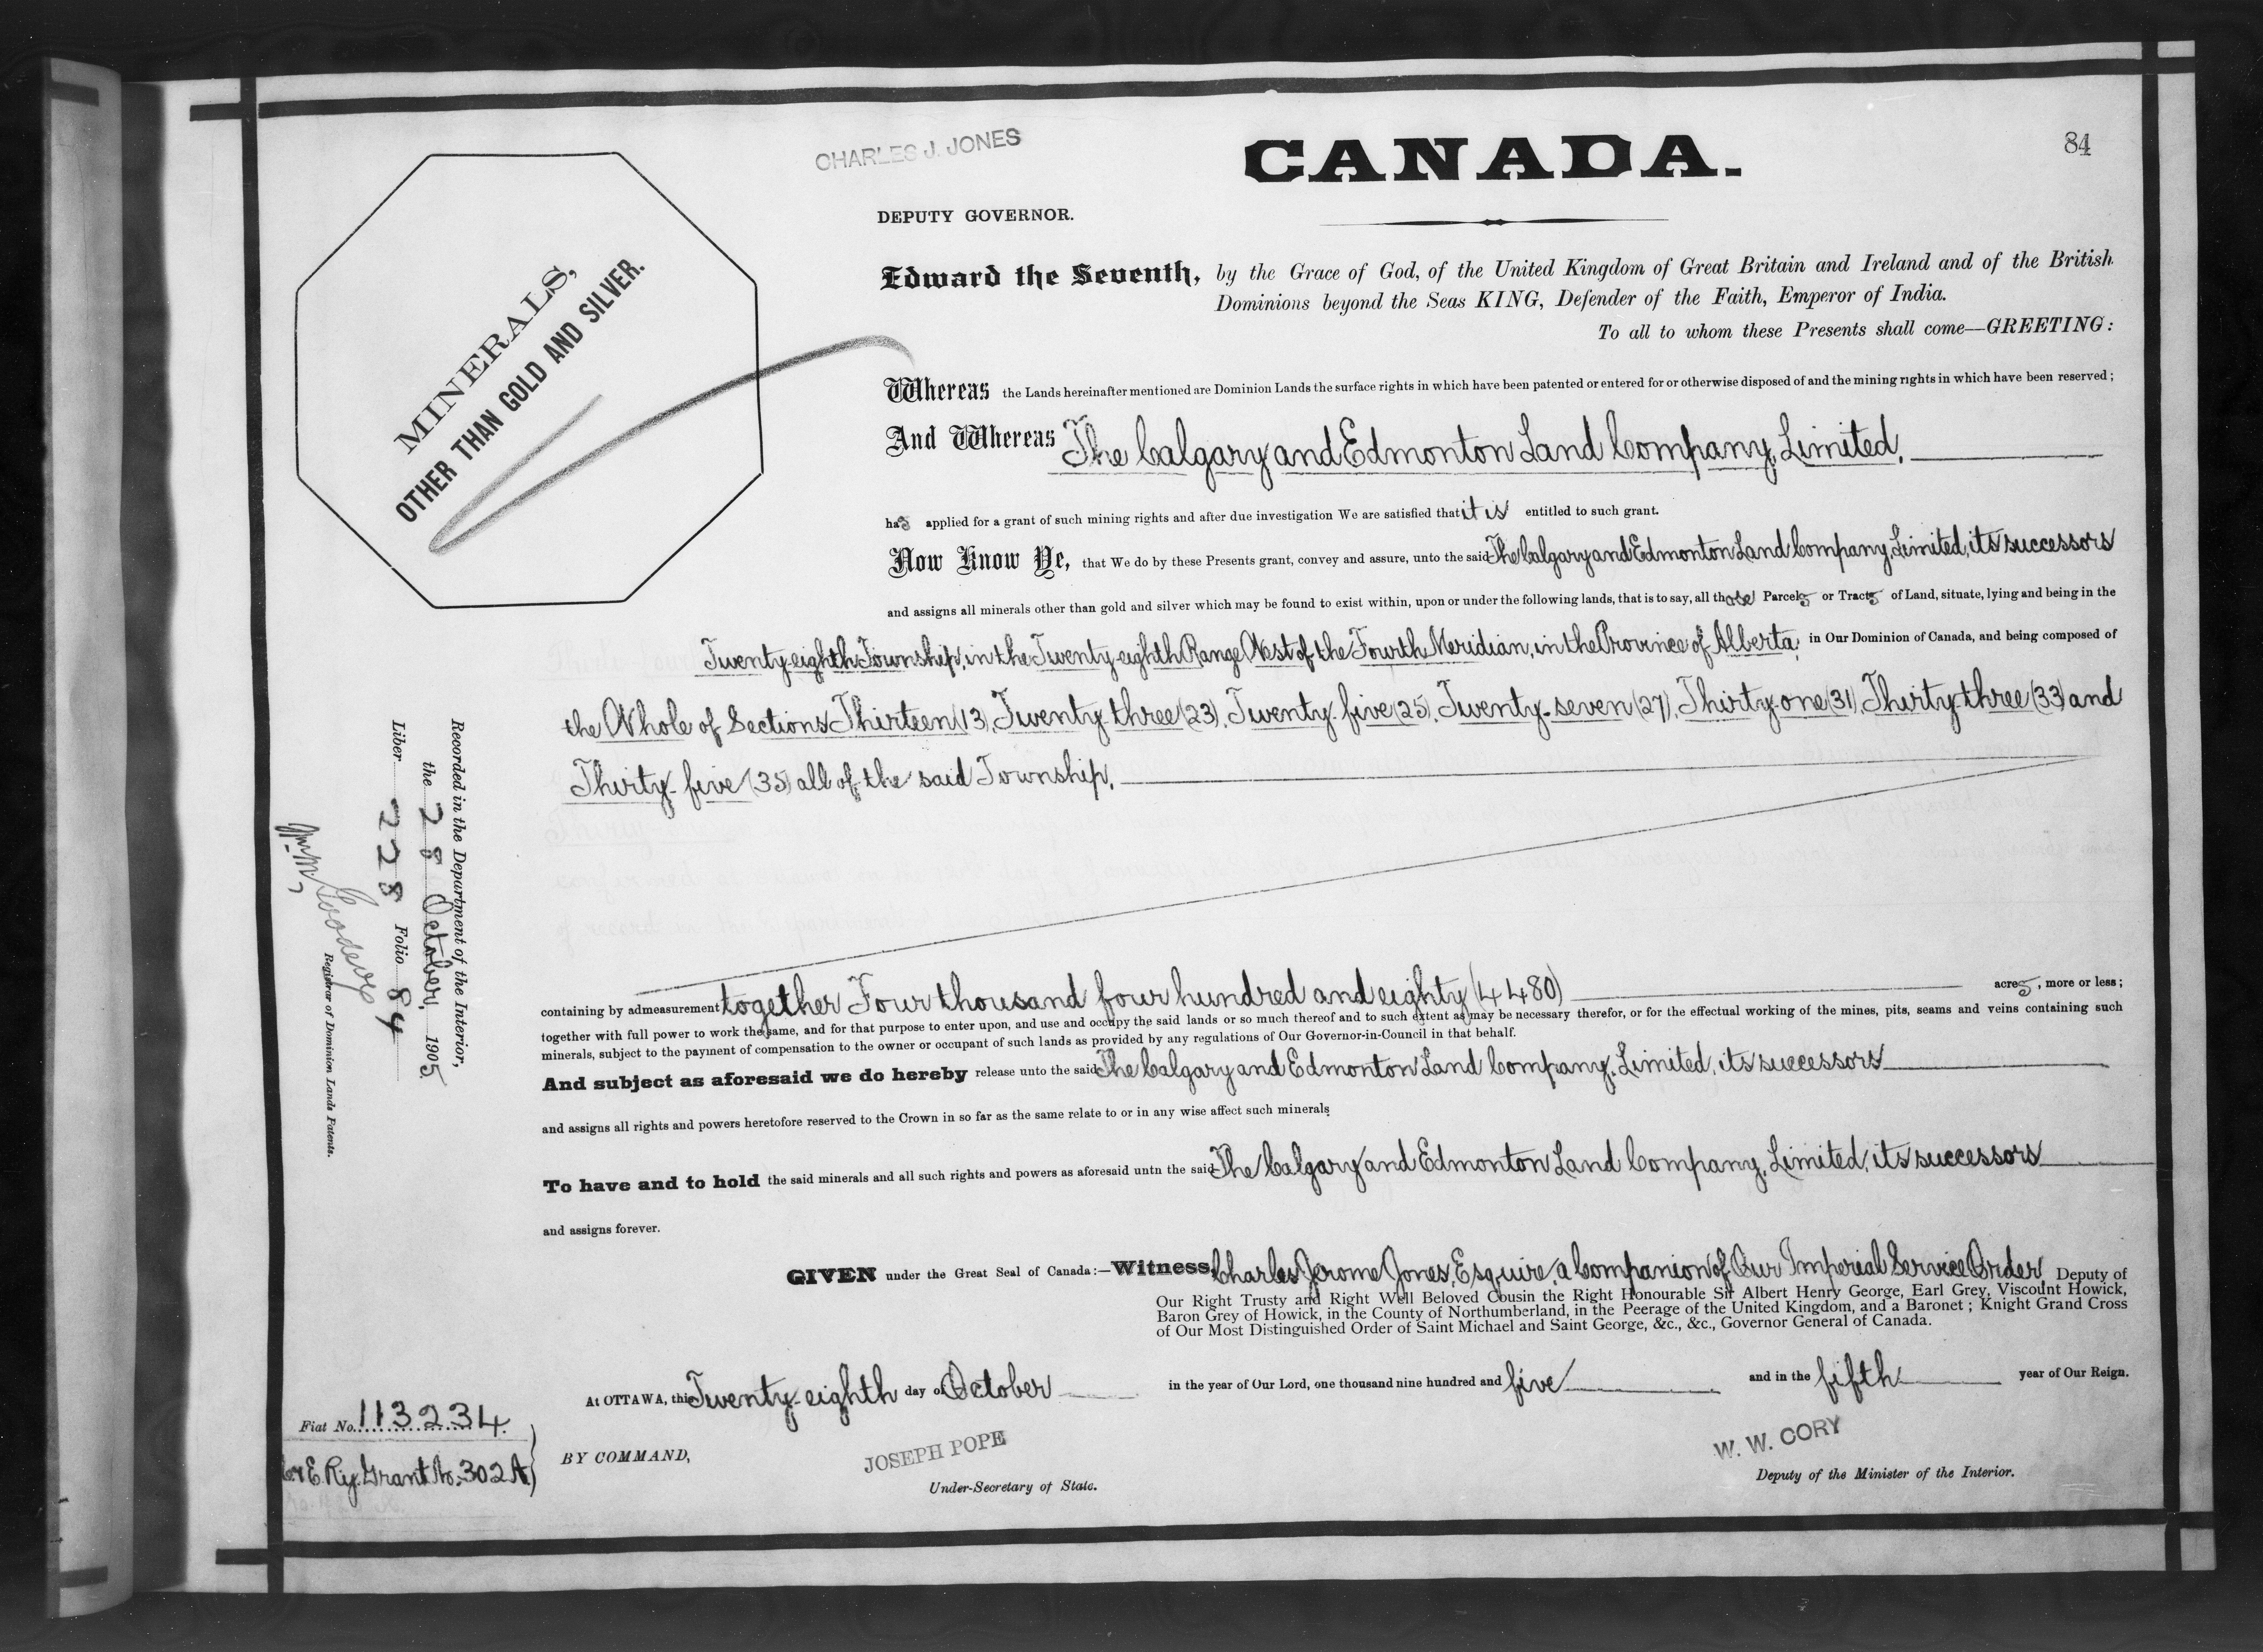 CHARLES J. JONES
CANADA.
84
DEPUTY GOVERNOR.
MINERALS,
OTHER THAN GOLD AND SILVER.
Edward the Seventh, by the Grace of God, of the United Kingdom of Great Britain and Ireland and of the British
Dominions beyond the Seas KING, Defender of the Faith, Emperor of India.
To all to whom these Presents shall come—GREETING:
Whereas the Lands hereinafter mentioned are Dominion Lands the surface rights in which have been patented or entered for or otherwise disposed of and the mining rights in which have been reserved;
And Whereas The Calgary and Edmonton Land Company, Limited,
has applied for a grant of such mining rights and after due investigation We are satisfied that it is entitled to such grant.
Now Know Ye, that We do by these Presents grant, convey and assure, unto the said The Calgary and Edmonton Land Company, Limited, its successors
and assigns all minerals other than gold and silver which may be found to exist within, upon or under the following lands, that is to say, all those Parcels or Tracts of Land, situate, lying and being in the
Twenty-eighth Township, in the Twenty-eighth Range West of the Fourth Meridian, in the Province of Alberta, in Our Dominion of Canada, and being composed of
the Whole of Sections Thirteen (13), Twenty-three (23), Twenty-five (25), Twenty-seven (27), Thirty-one (31), Thirty-three (33) and
Thirty-five (35) all of the said Township.
containing by admeasurement together Four thousand four hundred and eighty (4480) acres, more or less;
together with full power to work the same, and for that purpose to enter upon, and use and occupy the said lands or so much thereof and to such extent as may be necessary therefor, or for the effectual working of the mines, pits, seams and veins containing such
minerals, subject to the payment of compensation to the owner or occupant of such lands as provided by any regulations of Our Governor-in-Council in that behalf.
And subject as aforesaid we do hereby release unto the said The Calgary and Edmonton Land Company, Limited, its successors
and assigns all rights and powers heretofore reserved to the Crown in so far as the same relate to or in any wise affect such minerals
To have and to hold the said minerals and all such rights and powers as aforesaid untn the said The Calgary and Edmonton Land Company, Limited, its successors
and assigns forever.
GIVEN under the Great Seal of Canada:—Witness, Charles Jerome Jones, Esquire, a Companion of Our Imperial Service Order, Deputy of
Our Right Trusty and Right Well Beloved Cousin the Right Honourable Sir Albert Henry George, Earl Grey, Viscount Howick,
Baron Grey of Howick, in the County of Northumberland, in the Peerage of the United Kingdom, and a Baronet; Knight Grand Cross
of Our Most Distinguished Order of Saint Michael and Saint George, &c., &c., Governor General of Canada.
At OTTAWA, this Twenty-eighth day of October in the year of Our Lord, one thousand nine hundred and five and in the fifth year of Our Reign.
BY COMMAND,
JOSEPH POPE
Under-Secretary of State.
W. W. CORY
Deputy of the Minister of the Interior.
Recorded in the Department of the Interior,
the 28 October, 1905
Liber 228 Folio 84
Wm. M. Goodeve
Registrar of Dominion Lands Patents.
Fiat No. 113234.
C & E. Ry. Grant No. 302 A